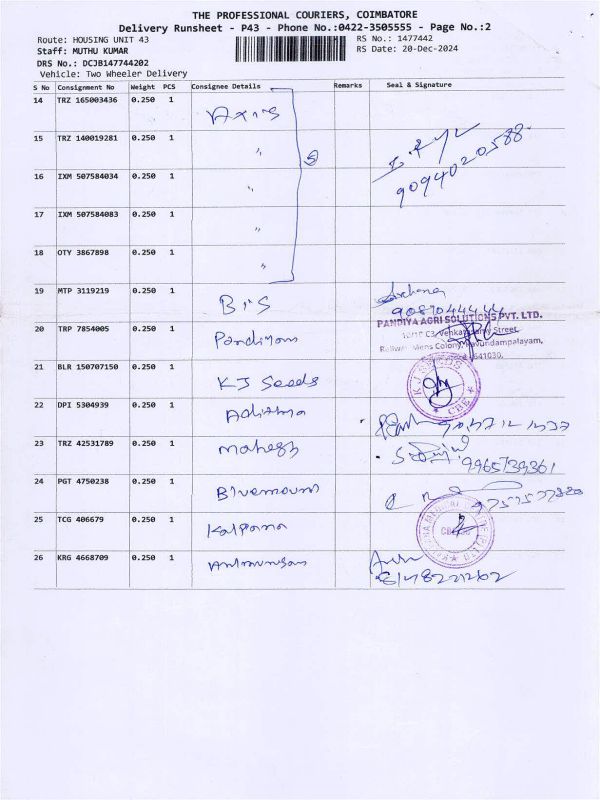 THE PROFESSIONAL COURIERS, COIMBATORE
Delivery Runsheet - P43 - Phone No.:0422-3505555 - Page No.:2
Route: HOUSING UNIT 43
RS No.: 1477442
Staff: MUTHU KUMAR
RS Date: 20-Dec-2024
DRS No.: DCJB147744202
Vehicle: Two Wheeler Delivery
S No Consignment No Weight PCS Consignee Details Remarks Seal & Signature
14 TRZ 165003436 0.250 1 Axis
15 TRZ 140019281 0.250 1 " 5
9094020588
16 IXM 507584034 0.250 1 "
17 IXM 507584083 0.250 1 "
18 OTY 3867898 0.250 1 "
19 MTP 3119219 0.250 1 BIS Archana
PANDIYA AGRI SOLUTIONS PVT. LTD.
20 TRP 7854005 0.250 1 Pandiyan
Street,
Mens Colony, Kavundampalayam,
641030.
21 BLR 150707150 0.250 1 KJ Seeds K J SEEDS CBE
22 DPI 5304939 0.250 1 Adithya
23 TRZ 42531789 0.250 1 Mahesh
24 PGT 4750238 0.250 1 Bluemount
25 TCG 406679 0.250 1 Kalpana
26 KRG 4668709 0.250 1